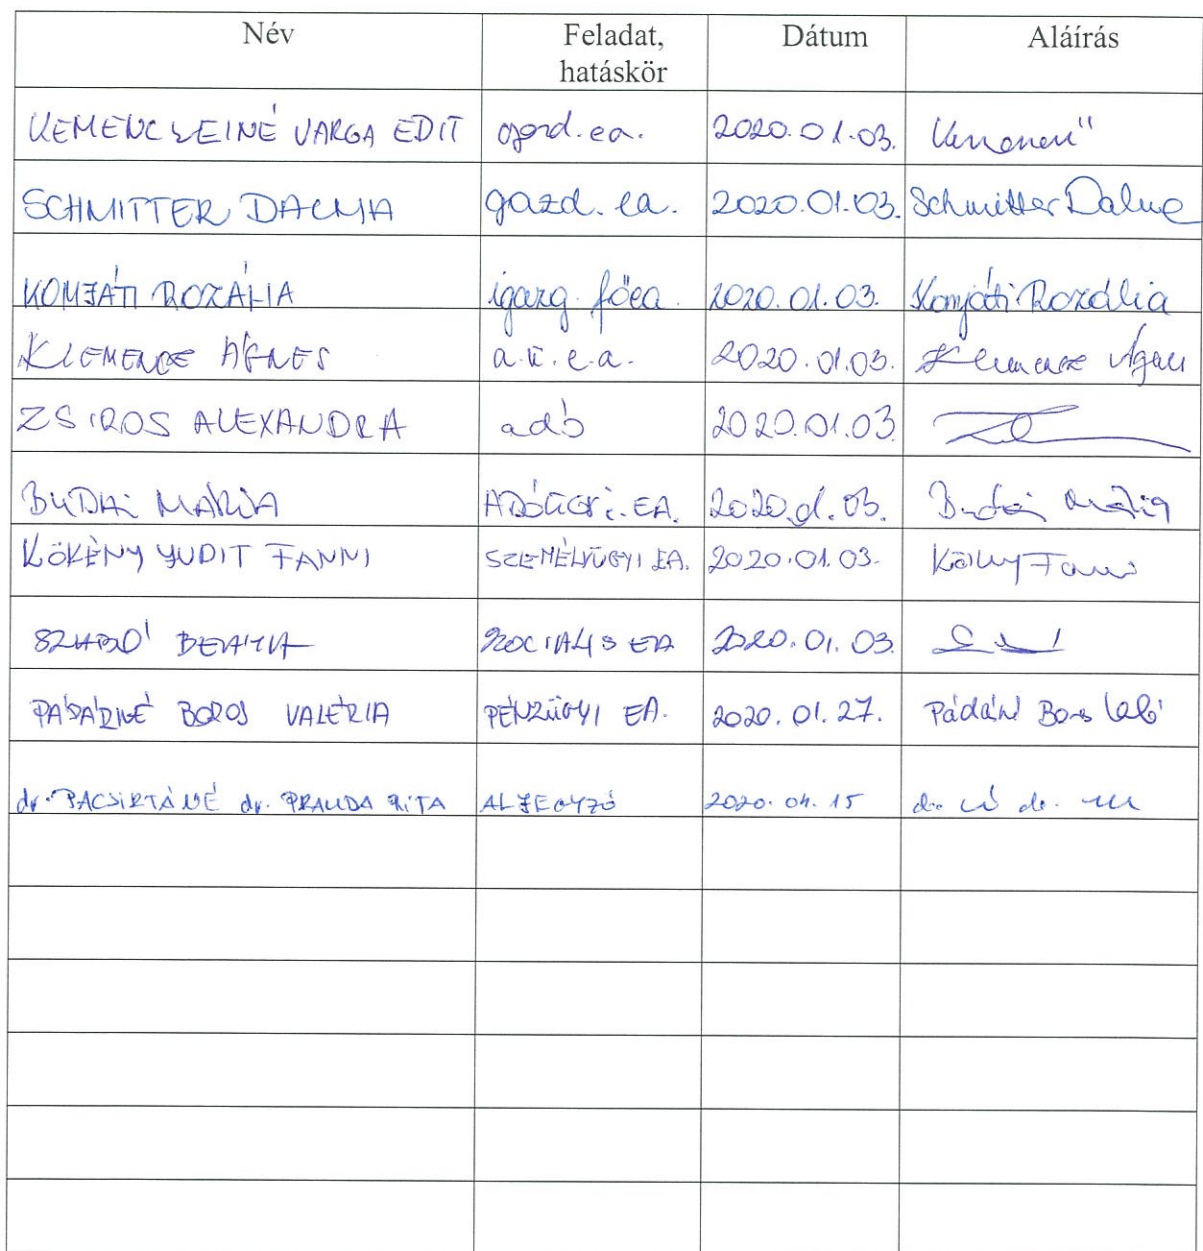 Név Feladat, Dátum Aláírás
hatáskör
KEMENCZEINÉ VARGA EDIT gazd. ea. 2020.01.03.
SCHMITTER DALMA gazd. ea. 2020.01.03. Schmitter Dalma
KOMJÁTI ROZÁLIA igazg. főea. 2020.01.03. Komjáti Rozália
KLEMENCZ ÁGNES 2020.01.03. Klemencz Ágnes
ZSIROS ALEXANDRA adó 2020.01.03
BUDAI MÁRIA ADÓÜGYI. EA. 2020.01.03. Budai Mária
KÖKÉNY JUDIT FANNI SZEMÉLYÜGYI EA. 2020.01.03. Kökény Fanni
SZABÓ BEATRIX SZOCIÁLIS EA 2020.01.03.
PÁDÁRNÉ BOROS VALÉRIA PÉNZÜGYI EA. 2020.01.27.
dr. PACSIRTÁNÉ dr. PRAUDA RITA ALJEGYZŐ 2020.04.15